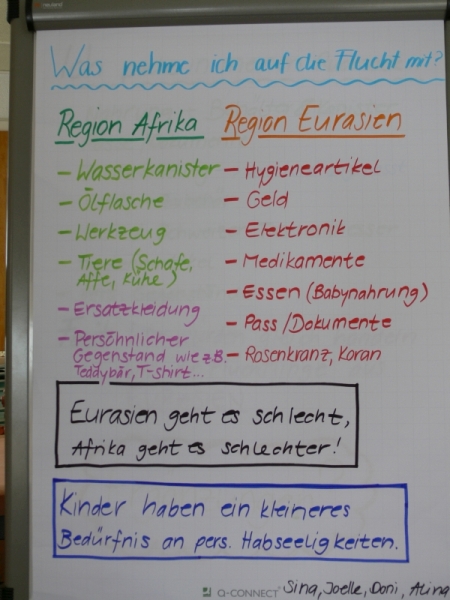 Was nehme ich auf die Flucht mit?
Region Afrika
- Wasserkanister
- Ölflasche
- Werkzeug
- Tiere (Schafe,
Affe, Kühe)
- Ersatzkleidung
- Persöhnlicher
Gegenstand wie z.B.
Teddybär, T-shirt...
Region Eurasien
- Hygieneartikel
- Geld
- Elektronik
- Medikamente
- Essen (Babynahrung)
- Pass/Dokumente
- Rosenkranz, Koran
Eurasien geht es schlecht,
Afrika geht es schlechter!
Kinder haben ein kleineres
Bedürfnis an pers. Habseeligkeiten.
Q-CONNECT
Sina, Joelle, Doni, Alina